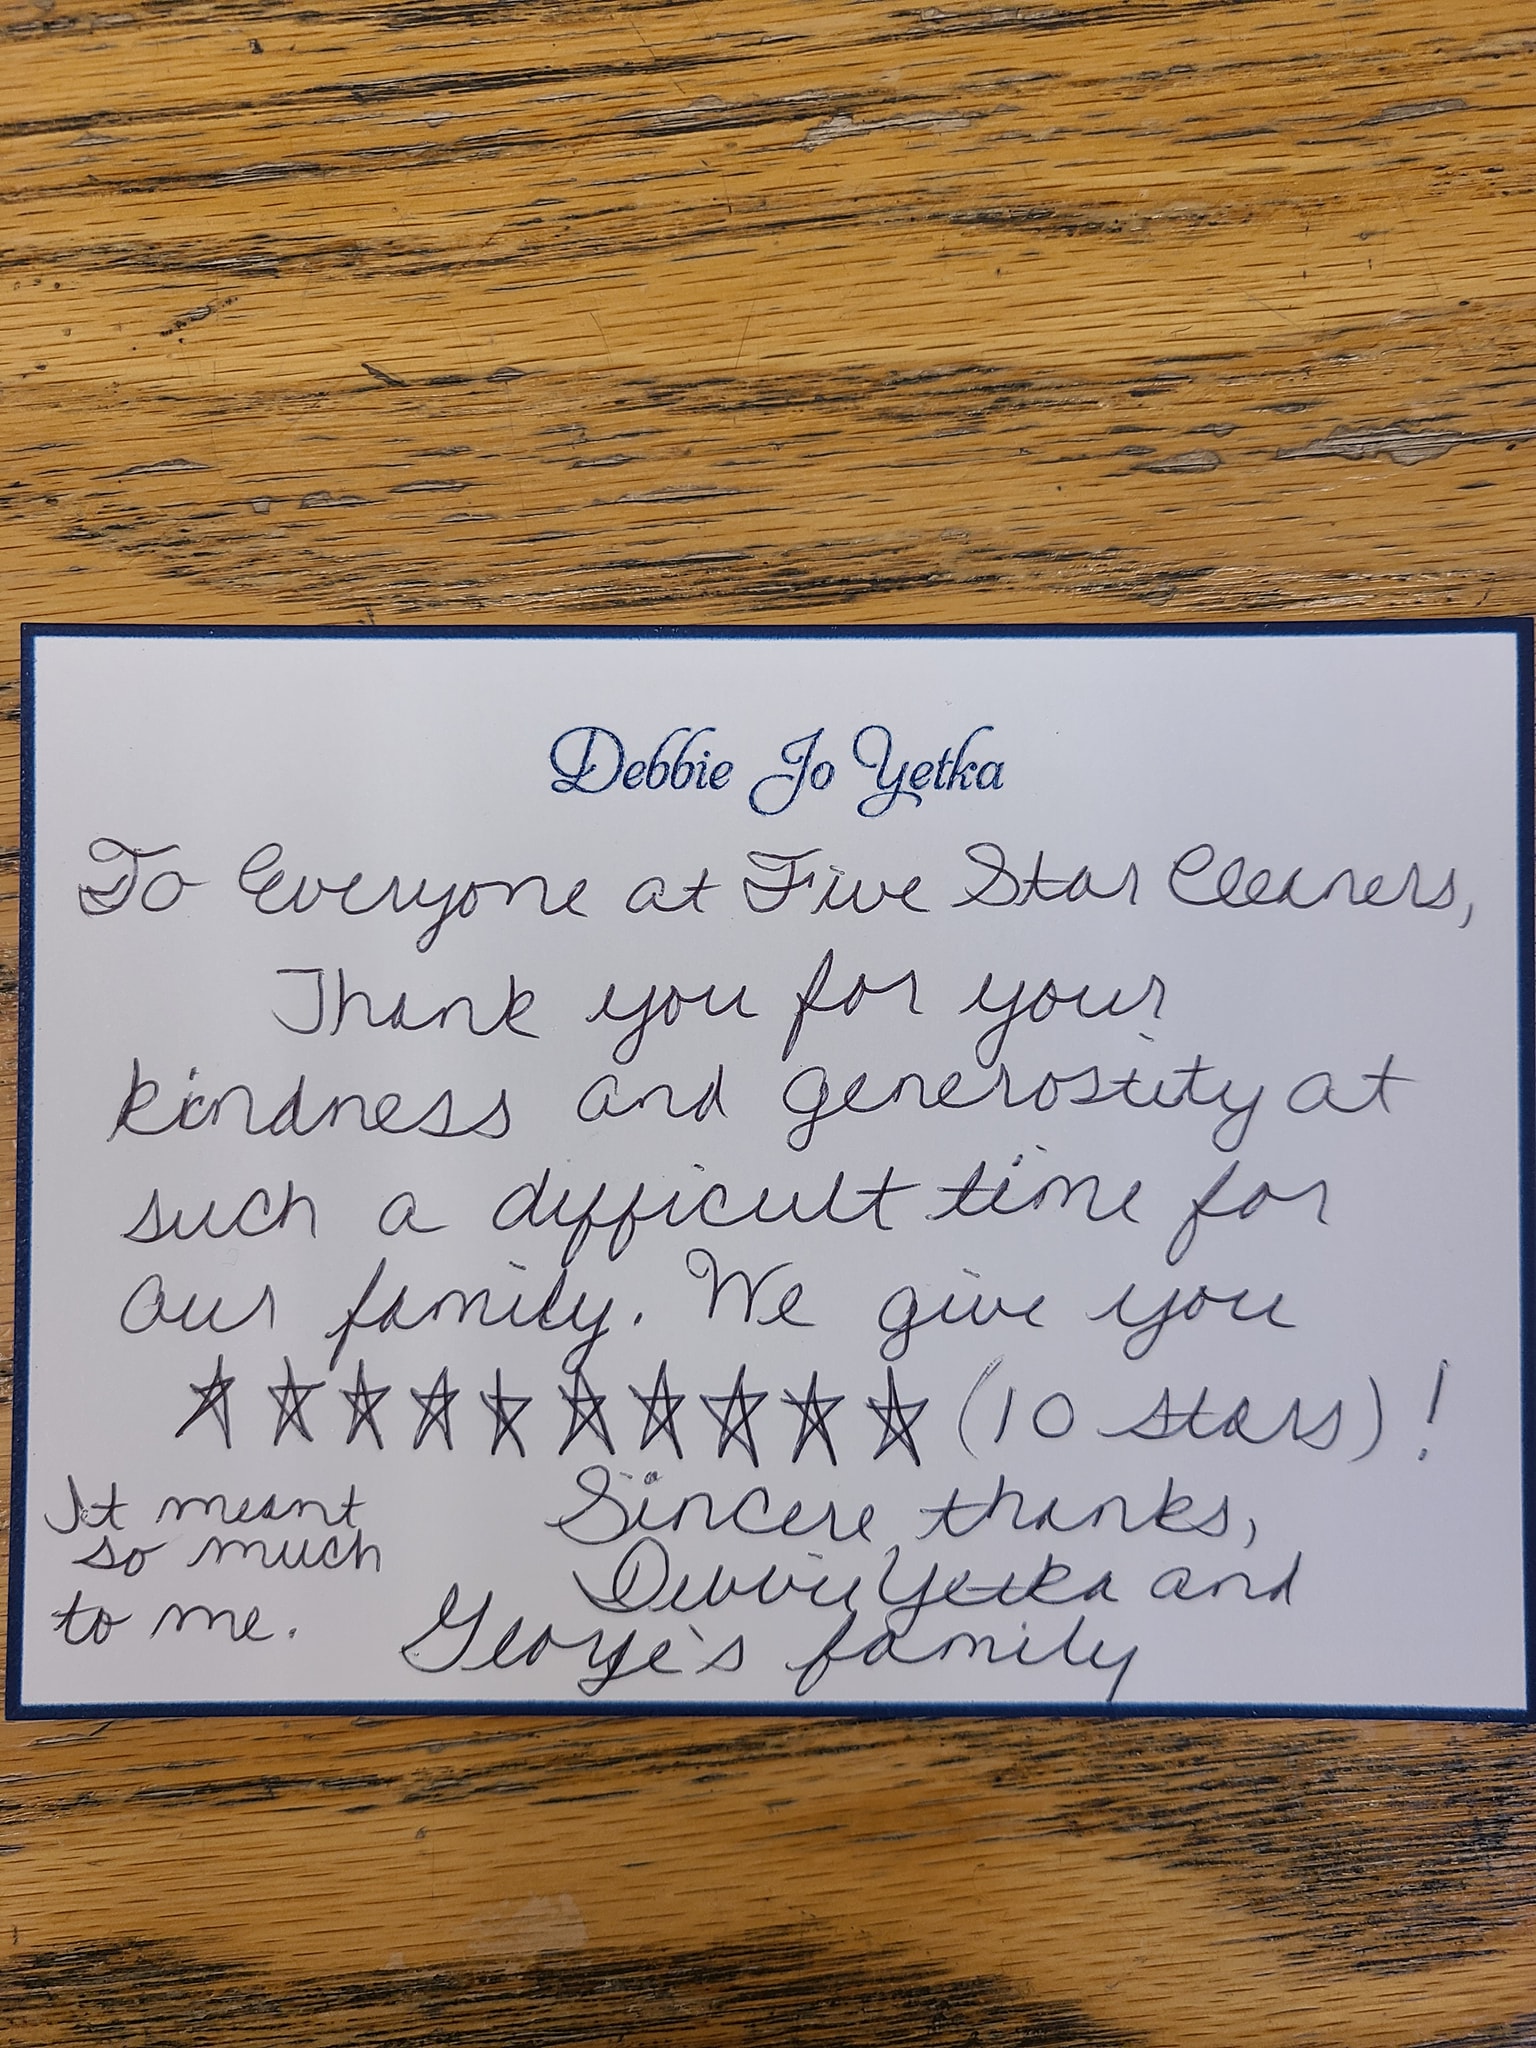 Debbie Jo Yetka
To Everyone at Five Star Cleaners,
Thank you for your
kindness and generosity at
such a difficult time for
our family. We give you
★★★★★★★★★★ (10 stars)!
Sincere thanks,
Debbie Yetka and
George's family
It meant
so much
to me.